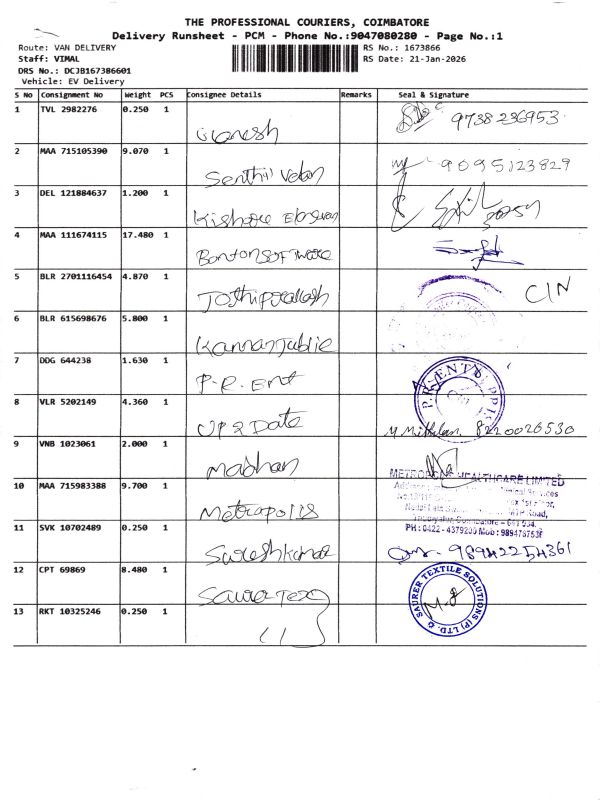 THE PROFESSIONAL COURIERS, COIMBATORE
Delivery Runsheet - PCM - Phone No.:9047080280 - Page No.:1
Route: VAN DELIVERY
RS No.: 1673866
Staff: VIMAL
RS Date: 21-Jan-2026
DRS No.: DCJB167386601
Vehicle: EV Delivery
S No Consignment No Weight PCS Consignee Details Remarks Seal & Signature
1 TVL 2982276 0.250 1 Ganesh 9738236953
2 MAA 715105390 9.070 1 Senthil Velan 9095123829
3 DEL 121884637 1.200 1 Kishore
4 MAA 111674115 17.480 1 Bonton Software
5 BLR 2701116454 4.870 1 CIN
6 BLR 615698676 5.800 1 Kannan
7 DDG 644238 1.630 1 P.R. Ent
8 VLR 5202149 4.360 1 UP 2 Date M. Mithilan 8220026530
9 VNB 1023061 2.000 1 Madhan
10 MAA 715983388 9.700 1 Metropolis
METROPOLIS HEALTHCARE LIMITED
Coimbatore - 641 034.
PH : 0422 - 4379200 Mob :
11 SVK 10702489 0.250 1 Sureshkumar 98942254361
12 CPT 69869 8.480 1 Saurer Tex
SAURER TEXTILE SOLUTIONS (P) LTD.
13 RKT 10325246 0.250 1